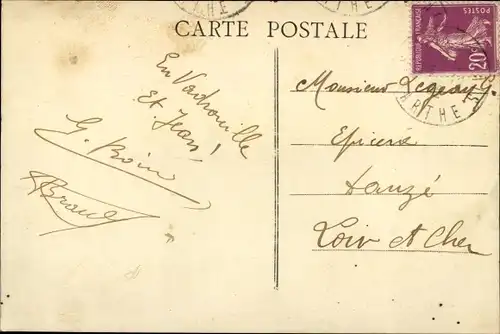 RTHE
CARTE POSTALE
REPUBLIQUE FRANÇAISE
POSTES
20c
RTHE
En Vadrouille
Et Jean!
G. Boin
Monsieur Legeay G.
Epicerie
Lanzé
Loir et Cher